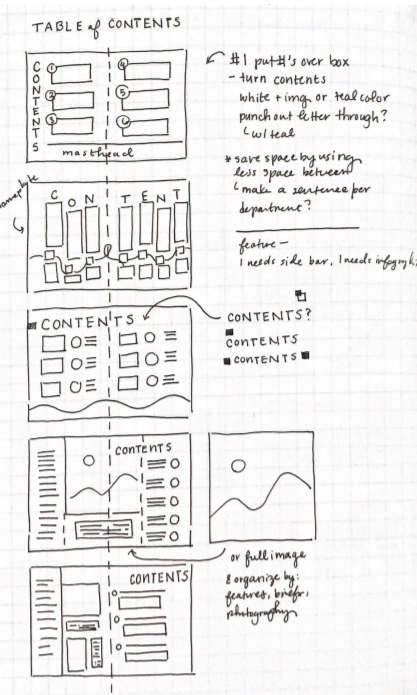 TABLE of CONTENTS
CONTENTS
1
2
3
4
5
6
masthead
#1 put #'s over box
- turn contents
white + img or teal color
punch out letter through?
w/ teal
* save space by using
less space between
make a sentence per
department?
feature -
1 needs side bar, 1 needs
CONTENT
CONTENTS
CONTENTS?
CONTENTS
CONTENTS
CONTENTS
or full image
& organize by:
features, briefs,
photography
CONTENTS